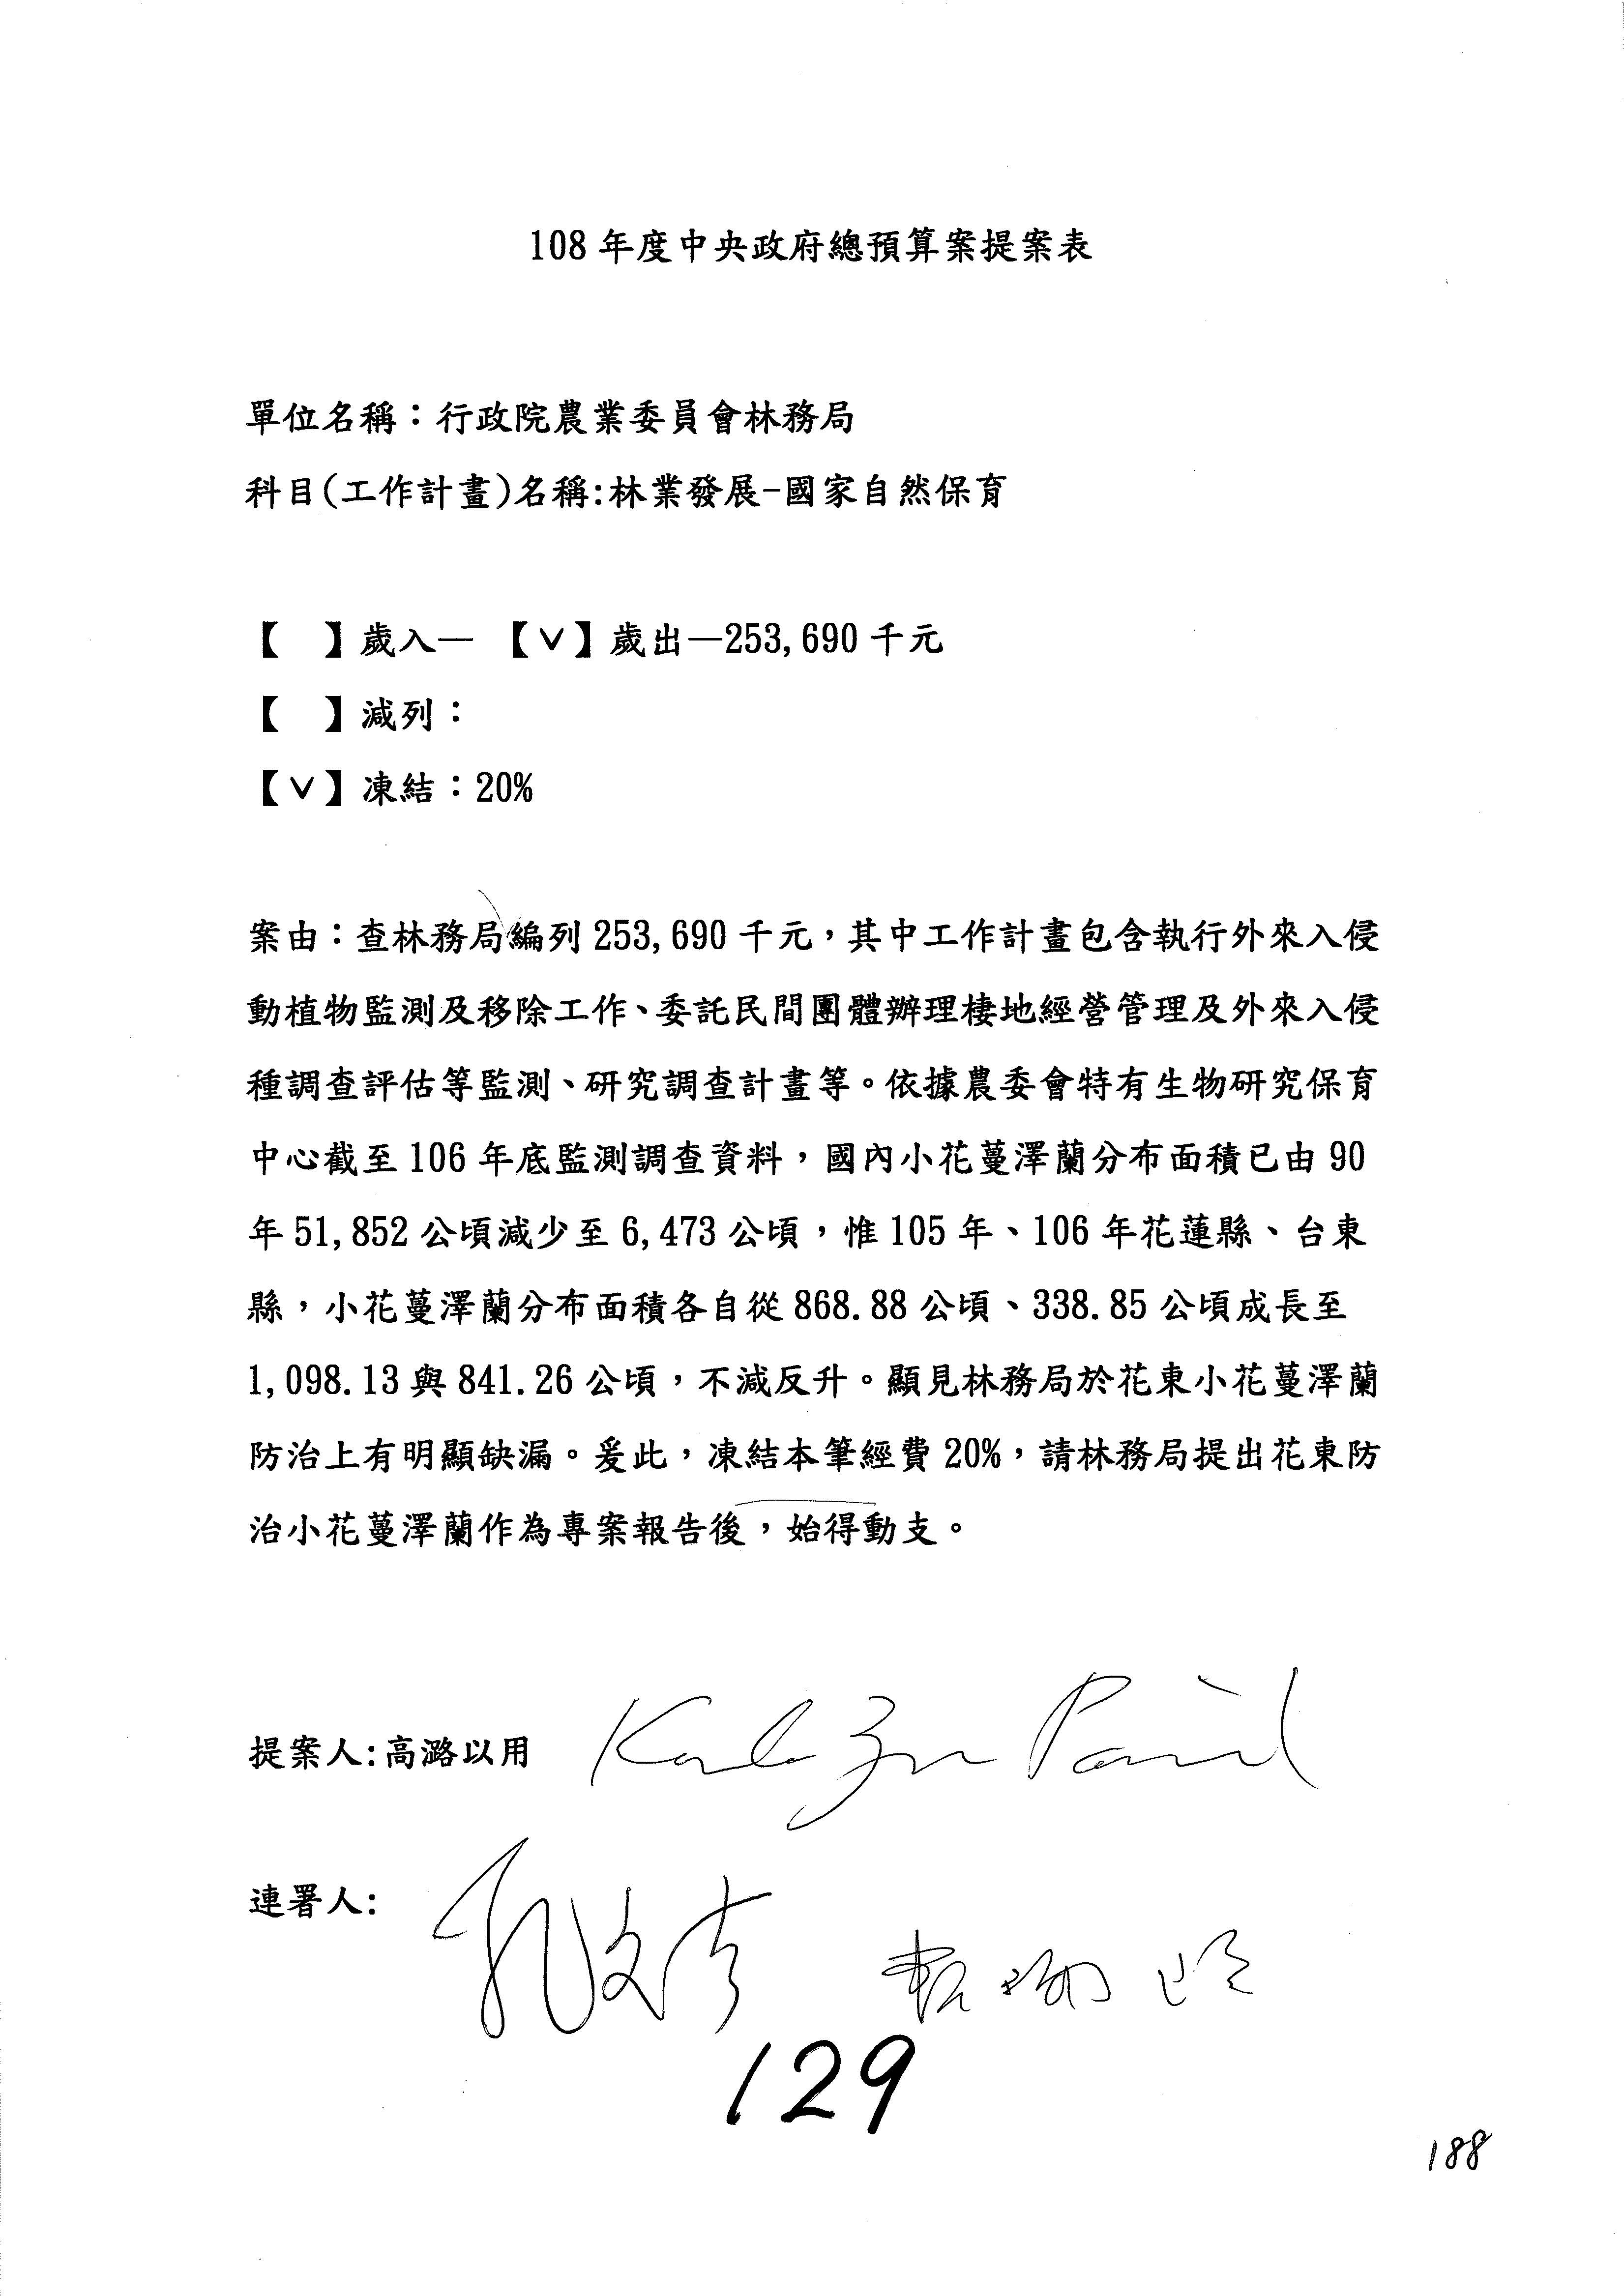 108 年度中央政府總預算案提案表
單位名稱：行政院農業委員會林務局
科目(工作計畫)名稱:林業發展-國家自然保育
【　】歲入— 【V】歲出—253,690 千元
【　】減列：
【V】凍結：20%
案由：查林務局編列 253,690 千元，其中工作計畫包含執行外來入侵
動植物監測及移除工作、委託民間團體辦理棲地經營管理及外來入侵
種調查評估等監測、研究調查計畫等。依據農委會特有生物研究保育
中心截至 106 年底監測調查資料，國內小花蔓澤蘭分布面積已由 90
年 51,852 公頃減少至 6,473 公頃，惟 105 年、106 年花蓮縣、台東
縣，小花蔓澤蘭分布面積各自從 868.88 公頃、338.85 公頃成長至
1,098.13 與 841.26 公頃，不減反升。顯見林務局於花東小花蔓澤蘭
防治上有明顯缺漏。爰此，凍結本筆經費 20%，請林務局提出花東防
治小花蔓澤蘭作為專案報告後，始得動支。
提案人:高潞以用
連署人:
129
188